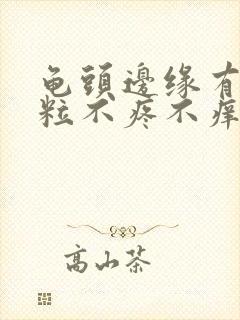 龟頭邊缘有
粒不疼不痒
高山茶